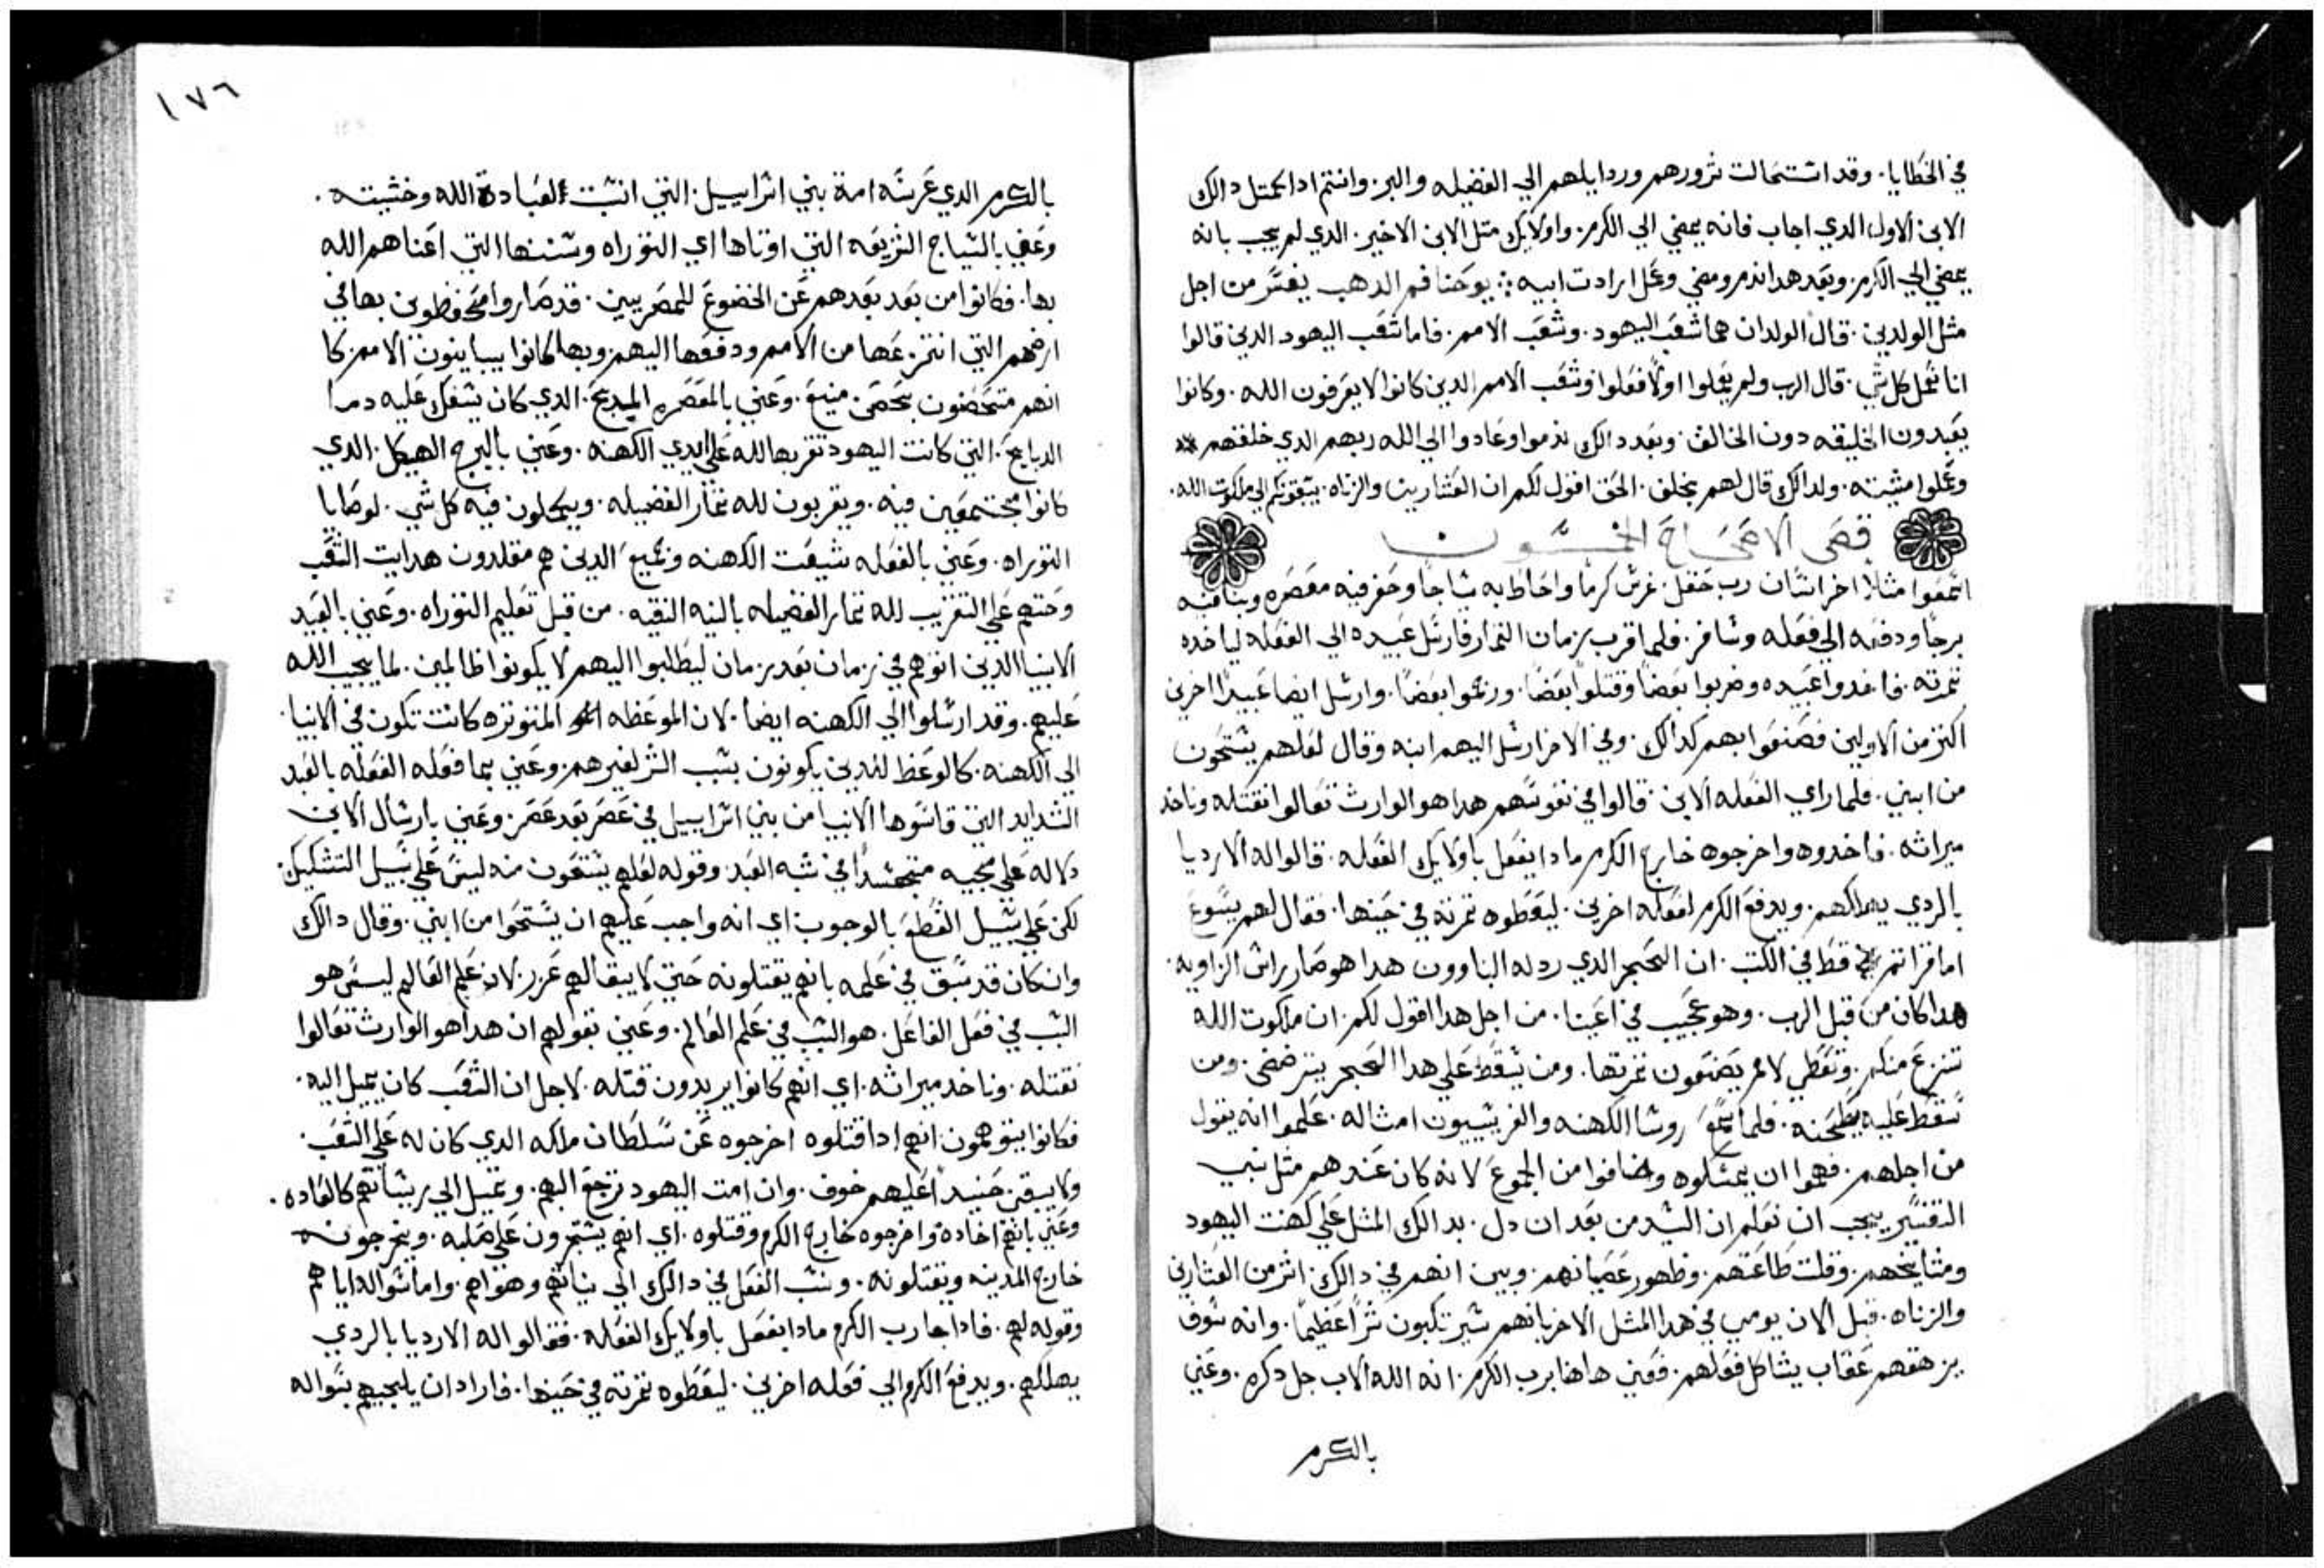 في الخطايا. وقد استحالت شرورهم وردايلهم الي الفضيله والبر. وانتم ادا كمتل دالك
الابن الاول الدي اجاب فانه يمضي الي الكرم. واولايك متل الابن الاخير. الدي لم يجب بانه
يمضي الي الكرم. وبعد هدا ندم ومضي وعمل ارادت ابيه. يوحنا فم الدهب يفسر من اجل
مثل الولدين. قال الولدان هما شعب اليهود. وشعب الامم. فاما شعب اليهود الدين قالوا
انا نعمل كل شي. قال الرب ولم يعملوا اولا فعلوا وشعب الامم الدين كانوا لا يعرفون الله. وكانوا
يعبدون الخليقه دون الخالق. وبعد دالك ندموا وعادوا الي الله ربهم الدي خلقهم
وعملوا مشيته. ولدالك قال لهم مخلص. الحق اقول لكم ان العشارين والزناه. يسبقونكم الي ملكوت الله.
فصى الاصحاح الخمسون
اسمعوا مثلا اخر انسان رب حقل. غرس كرما واحاط به سياجا وحفر فيه معصره وبنا فيه
برجا ودفعه الي فعله وسافر. فلما قرب زمان الثمار فارسل عبيده الي الفعله لياخده
ثمرته. فاخدوا عبيده وضربوا بعضا وقتلوا بعضا. ورجموا بعضا. وارسل ايضا عبيدا اخرين
اكثر من الاولين فصنعوا بهم كدالك. وفي الاخر ارسل اليهم ابنه وقال لعلهم يستحون
من ابني. فلما راي الفعله الابن. قالوا في نفوسهم هدا هو الوارث تعالوا نقتله وناخد
ميراثه. فاخدوه واخرجوه خارج الكرم مادا يفعل باولايك الفعله. قالوا له الارديا
بالردي يهلكهم. ويدفع الكرم لفعله اخرين. ليعطوه ثمرته في حينها. فقال لهم يسوع
اما قراتم قط في الكتب. ان الحجر الدي ردله البناوون هدا هو صار راس الزاويه.
هدا كان من قبل الرب. وهو عجيب في اعيننا. من اجل هدا اقول لكم. ان ملكوت الله
تنزع منكم. وتعطي لامم يصنعون ثمرتها. ومن يسقط علي هدا الحجر يترضض. ومن
سقط عليه يطحنه. فلما سمع روسا الكهنه والفريسيون امثاله. علموا انه يقول
من اجلهم. فهموا ان يمسكوه وخافوا من الجموع لانه كان عندهم مثل نبي
التفسير يجب ان نعلم ان السيد من بعد ان دل. بدالك المثل علي كهنت اليهود
ومشايخهم. وقلت طاعتهم. وظهور عصيانهم. وبين انهم في دالك. اشر من العشارين
والزناه. قبل الان يومي في هدا المثل الاخر بانهم سيرتكبون شرا عظيما. وانه سوف
يزهقهم عقاب يشاكل فعلهم. فعني هاهنا برب الكرم. انه الله الاب جل دكره. وعني
بالكرم
١٧٦
بالكرم الدي غرسه امة بني اسراييل. التي انتبت لعبادة الله وخشيته.
وعني بالسياج الشريعه التي اوتاها اي التوراه وسننها التي اعناهم الله
بها. فكانوا من بعد بعدهم عن الخضوع للمصريين. قد صاروا محفظون بها في
ارضهم التي انتزعها من الامم ودفعها اليهم. وبها كانوا يباينون الامم. كا
انهم متحضنون بحصن. منيع. وعني بالمعصره المدبح. الدي كان يسفك عليه دما
الدبايح. التي كانت اليهود تقربها لله علي ايدي الكهنه. وعني بالبرج الهيكل. الدي
كانوا مجتمعين فيه. ويقربون لله ثمار الفضيله. ويكملون فيه كل شي. لوصايا
التوراه. وعني بالفعله شيعت الكهنه وجميع الدين هم مقلدون هدايت الشعب
وحتهم علي التقريب لله ثمار الفضيله بالنيه النقيه. من قبل تعليم التوراه. وعني بالعبيد
الانبيا الدين اتوهم في زمان بعد زمان ليطلبوا اليهم لا يكونوا ظالمين. لما يجب الله
عليهم. وقد ارسلوا الي الكهنه ايضا. لان الموعظه المتوتره كانت تكون في الانبيا.
الي الكهنه. كالوعظ للدين يكونون بسبب الشر لغيرهم. وعني بما فعله الفعله بالعبد
الشدايد التي قاسوها الانبيا من بني اسراييل في عصر بعد عصر. وعني بارسال الابن
دلاله علي مجيه متجسدا في شبه العبد. وقوله لعلهم يستحون منه ليس علي سبيل التشكيك
لكن علي سبيل القطع بالوجوب اي انه واجب عليهم ان يستحوا من ابني. وقال دالك
وان كان قد سبق في علمه بانهم يقتلونه حتي لا يبقا لهم عزر. لان علم العالم ليس هو
السبب في فعل الفاعل. هو السبب في علم العالم. وعني بقولهم ان هدا هو الوارث تعالوا
نقتله. وناخد ميراثه. اي انهم كانوا يريدون قتله. لاجل ان الشعب كان يميل اليه.
فكانوا يتوهمون انهم ادا قتلوه اخرجوه عن سلطان ملكه الدي كان له علي الشعب.
ولا يبقي حينيد عليهم خوف. وان امت اليهود ترجع اليهم. وتميل الي رياستهم كالعاده.
وعني بانهم اخدوه واخرجوه خارج الكرم وقتلوه. اي انهم يشتمرون علي صلبه. ويخرجونه
خارج المدينه ويقتلونه. ونسب الفعل في دالك الي نياتهم وهواهم. واما سواله اياهم
وقوله لهم. فادا جا رب الكرم مادا يفعل باولايك الفعله. فقالوا له الارديا بالردي
يهلكهم. ويدفع الكرم الي فعله اخرين. ليعطوه ثمرته في حينها. فاراد ان يلجيهم بسواله